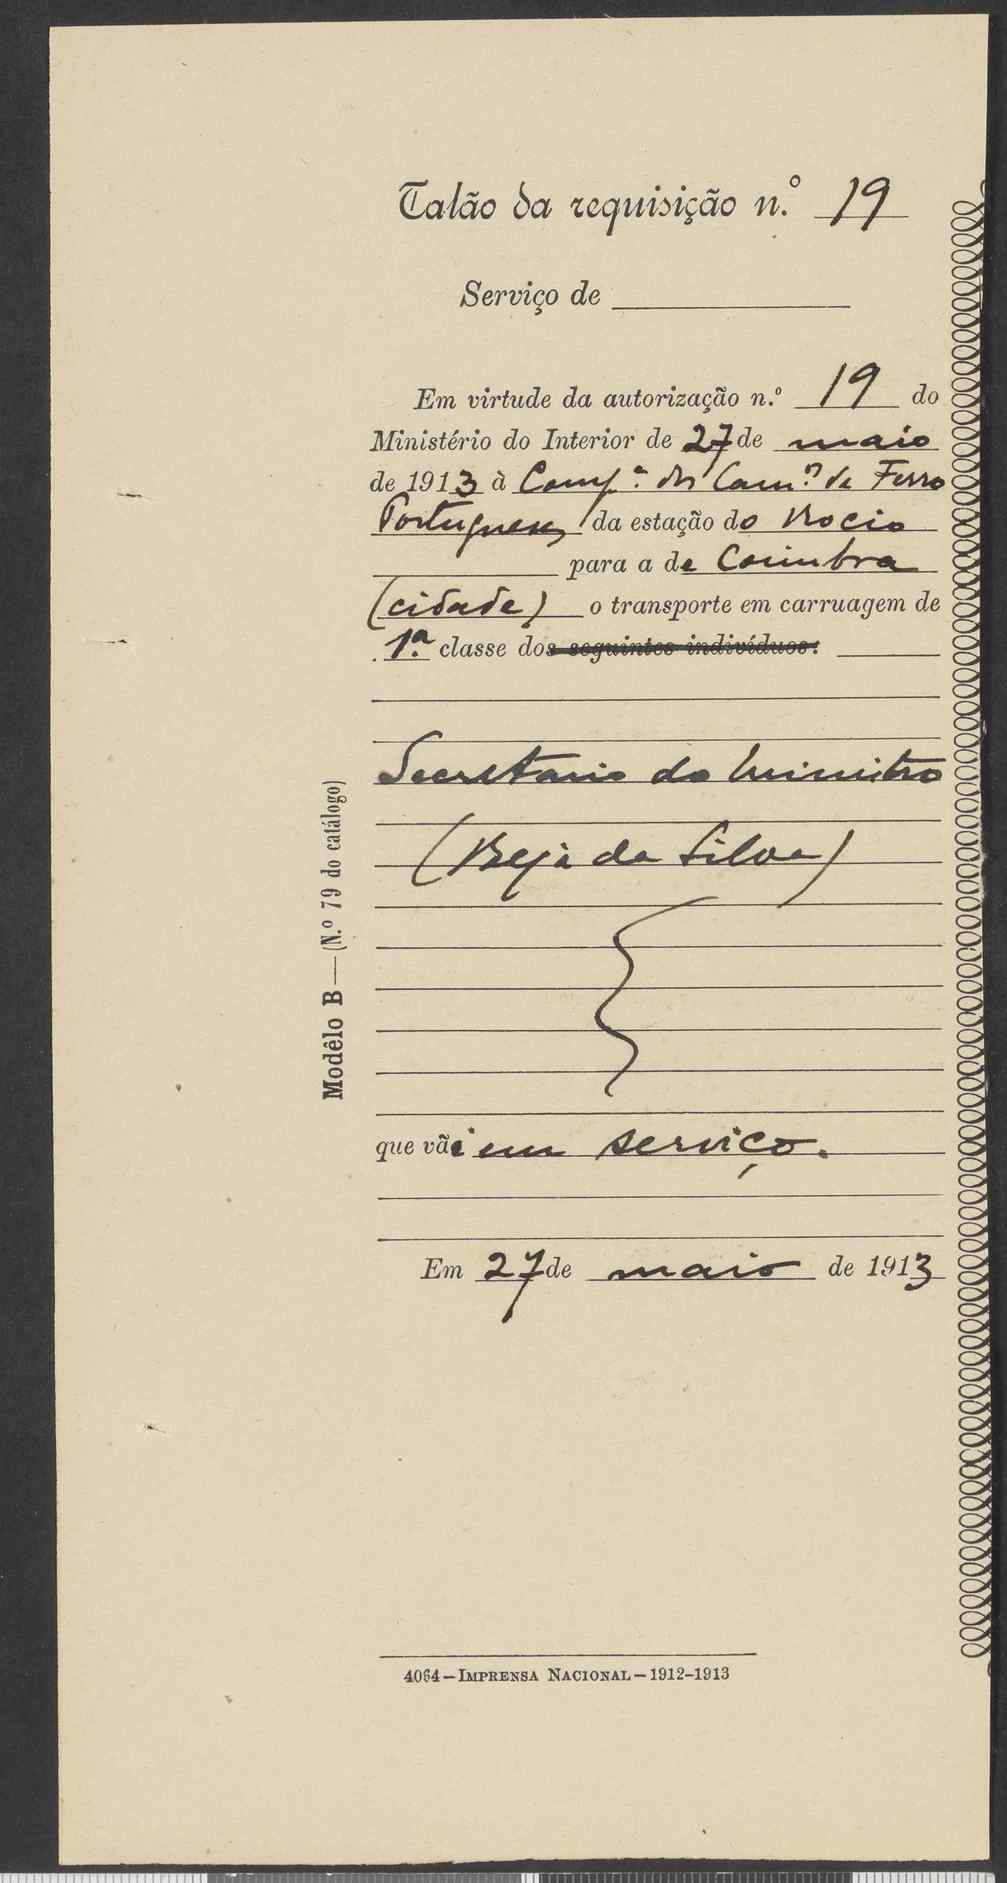 Talão da requisição n.º 19
Serviço de
Em virtude da autorização n.º 19 do
Ministério do Interior de 27 de maio
de 1913 à Comp.ª dos Cam.os de Ferro
Portugueses da estação do Rocio
para a de Coimbra
(cidade) o transporte em carruagem de
1.ª classe dos seguintes indivíduos:
Secretario do Ministro
(Beja da Silva)
que vai em serviço.
Em 27 de maio de 1913
Modêlo B—(N.º 79 do catálogo)
4064—IMPRENSA NACIONAL—1912-1913